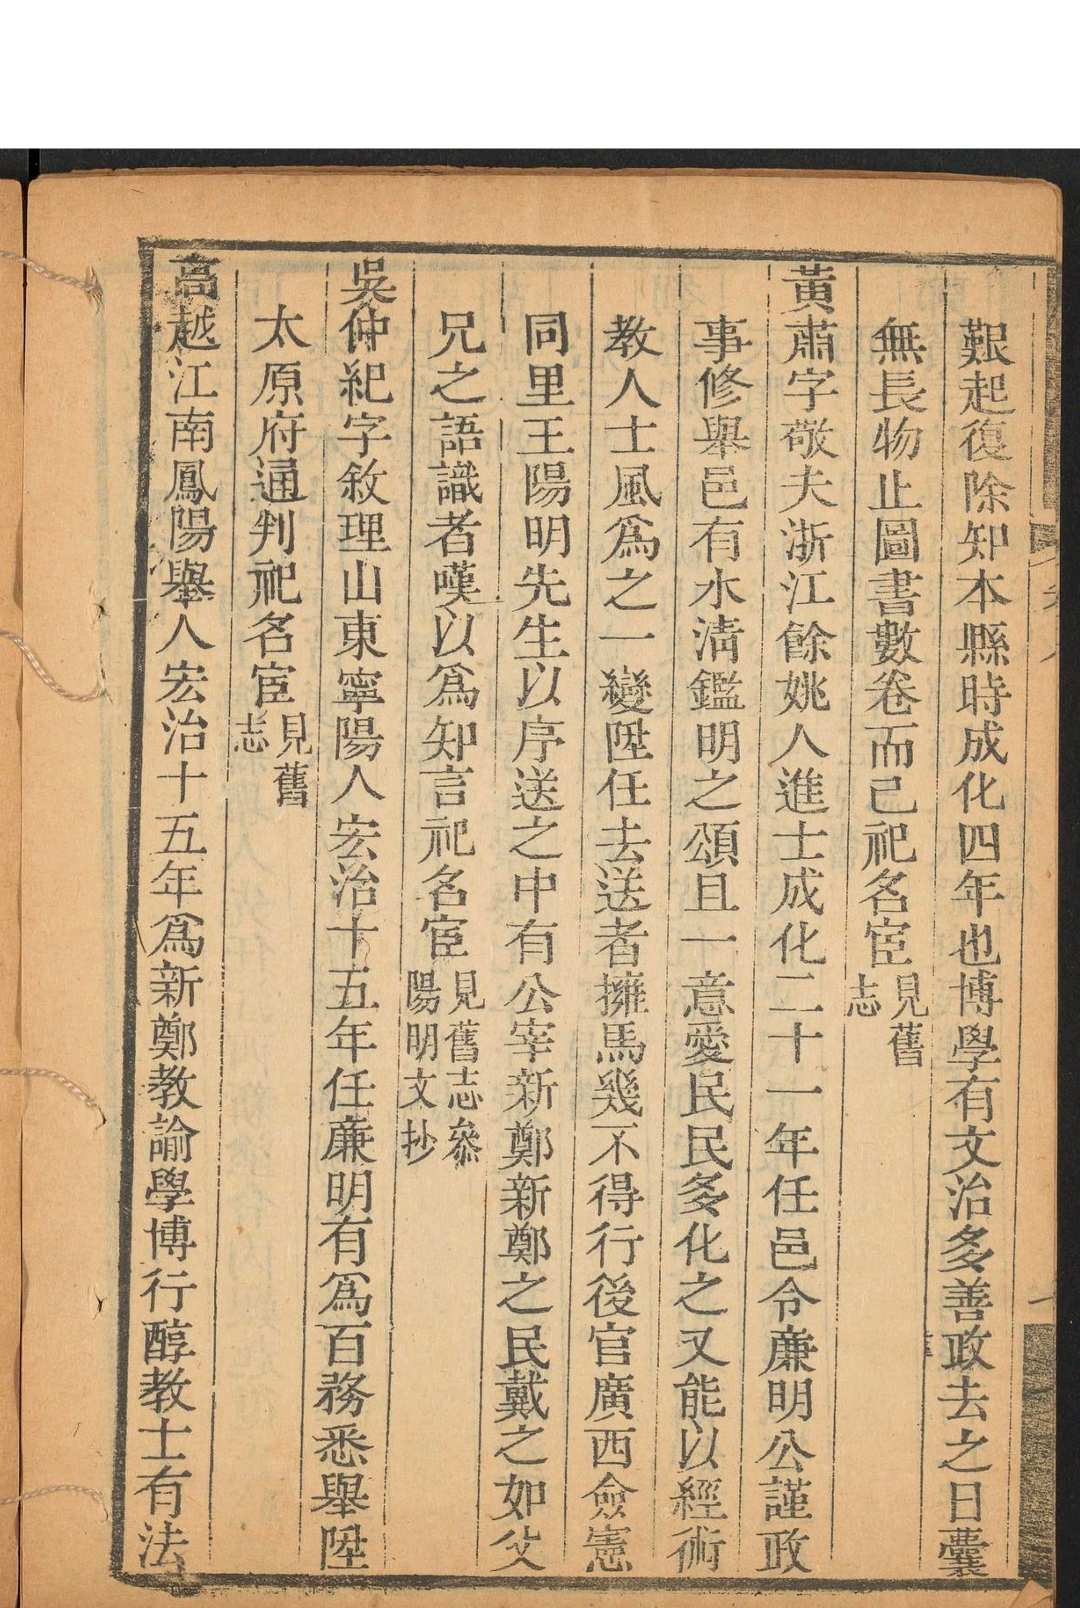 艱起復除知本縣時成化四年也博學有文治多善政去之日囊
無長物止圖書數卷而已祀名宦見舊志
黃肅字敬夫浙江餘姚人進士成化二十一年任邑令廉明公謹政
事修舉邑有水淸鑑明之頌且一意愛民民多化之又能以經術
教人士風爲之一變陞任去送者擁馬幾不得行後官廣西僉憲
同里王陽明先生以序送之中有公宰新鄭新鄭之民戴之如父
兄之語識者嘆以爲知言祀名宦見舊志叅陽明文抄
吳仲紀字敘理山東寧陽人宏治十五年任廉明有爲百務悉舉陞
太原府通判祀名宦見舊志
高越江南鳳陽舉人宏治十五年爲新鄭教諭學博行醇教士有法